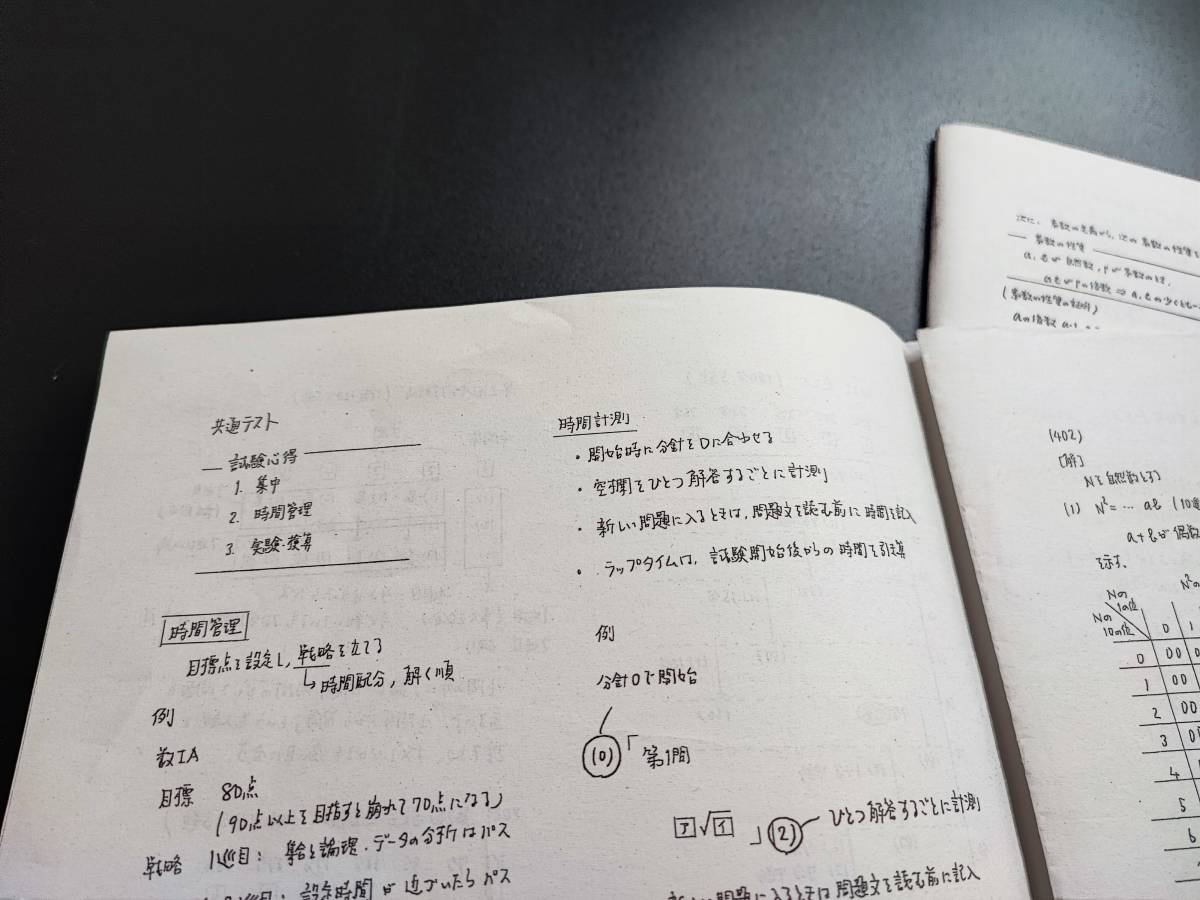 共通テスト
試験心得
1. 集中
2. 時間管理
3. 実験・複算
時間管理
目標点を設定し, 戦略を立てる
↳ 時間配分, 解く順
例
数IA
目標 80点
(90点以上を目指すと崩れて70点になる)
戦略 1巡目: 集合と論理・データの分析はパス
巡目: 設定時間が近づいたらパス
時間計測
・開始時に分針を0に合わせる
・空欄をひとつ解答するごとに計測
・新しい問題に入るときは, 問題文を読む前に時間を記入
・ラップタイムは, 試験開始後からの時間を引算
例
分針0で開始
(0) 「第1問
ア√イ 」(2) ひとつ解答するごとに計測
新しい問題に入るときは問題文を読む前に記入
次に, 素数の定義から, 次の素数の性質を
素数の性質
a, bが自然数, pが素数のとき,
abがpの倍数 ⇒ a, bの少くとも
(素数の性質の証明)
aの倍数
(402)
[解]
Nを自然数とする
(1) N²=… ab (10進
a+bが偶数
を示す.
N²の
Nの1の位
Nの10の位
0 1
0 00 0
1 00
2 00
3 0
4
5
6